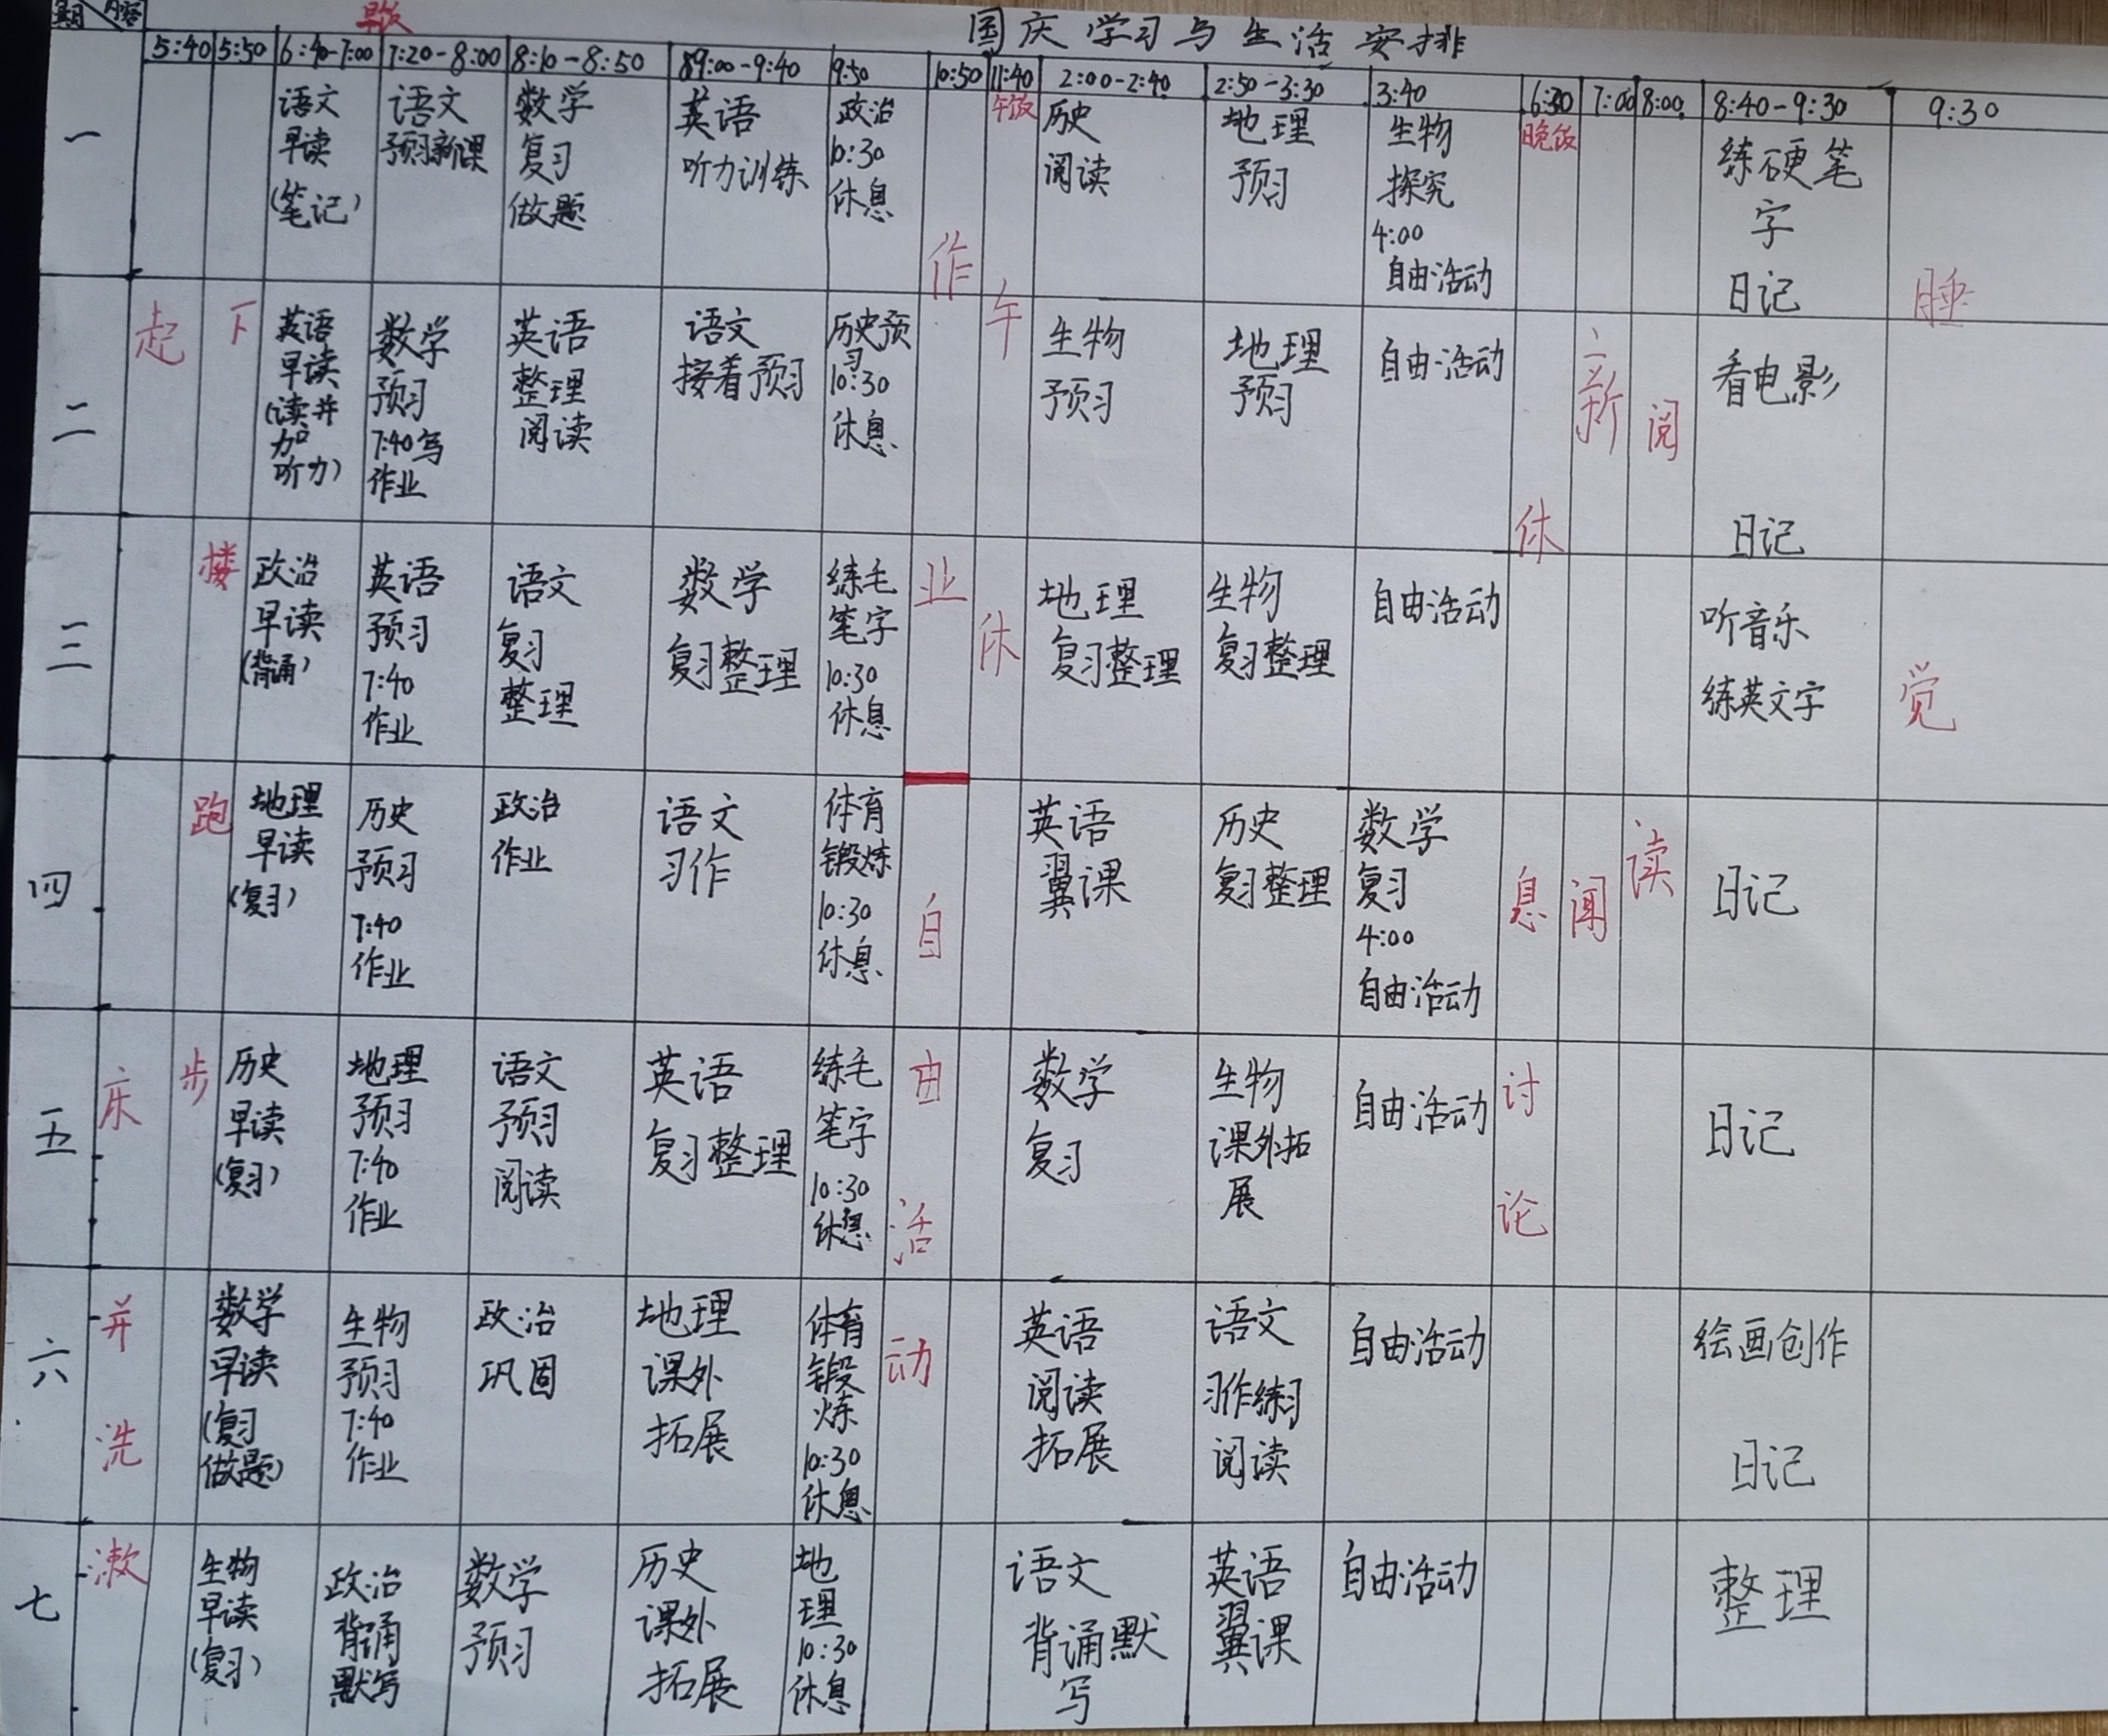 期 内容
早饭
国庆学习与生活安排
5:40 5:50 6:40-7:00 7:20-8:00 8:10-8:50 89:00-9:40 9:50 10:50 11:40 2:00-2:40 2:50-3:30 3:40 6:30 7:00 8:00 8:40-9:30 9:30
一
语文
早读
(笔记)
语文
预习新课
数学
复习
做题
英语
听力训练
政治
10:30
休息
午饭
历史
阅读
地理
预习
生物
探究
4:00
自由活动
晚饭
练硬笔
字
日记
二
英语
早读
(读并
加
听力)
数学
预习
7:40写
作业
英语
整理
阅读
语文
接着预习
历史预
习
10:30
休息
生物
预习
地理
预习
自由活动
看电影
日记
三
政治
早读
(背诵)
英语
预习
7:40
作业
语文
复习
整理
数学
复习整理
练毛
笔字
10:30
休息
地理
复习整理
生物
复习整理
自由活动
听音乐
练英文字
四
地理
早读
(复习)
历史
预习
7:40
作业
政治
作业
语文
习作
体育
锻炼
10:30
休息
英语
翼课
历史
复习整理
数学
复习
4:00
自由活动
日记
五
历史
早读
(复习)
地理
预习
7:40
作业
语文
预习
阅读
英语
复习整理
练毛
笔字
10:30
休息
数学
复习
生物
课外拓
展
自由活动
日记
六
数学
早读
(复习
做题)
生物
预习
7:40
作业
政治
巩固
地理
课外
拓展
体育
锻
炼
10:30
休息
英语
阅读
拓展
语文
习作练习
阅读
自由活动
绘画创作
日记
七
生物
早读
(复习)
政治
背诵
默写
数学
预习
历史
课外
拓展
地
理
10:30
休息
语文
背诵默
写
英语
翼课
自由活动
整理
起床并洗漱
下楼跑步
作业
自由活动
午休
休息讨论
新闻
阅读
睡觉